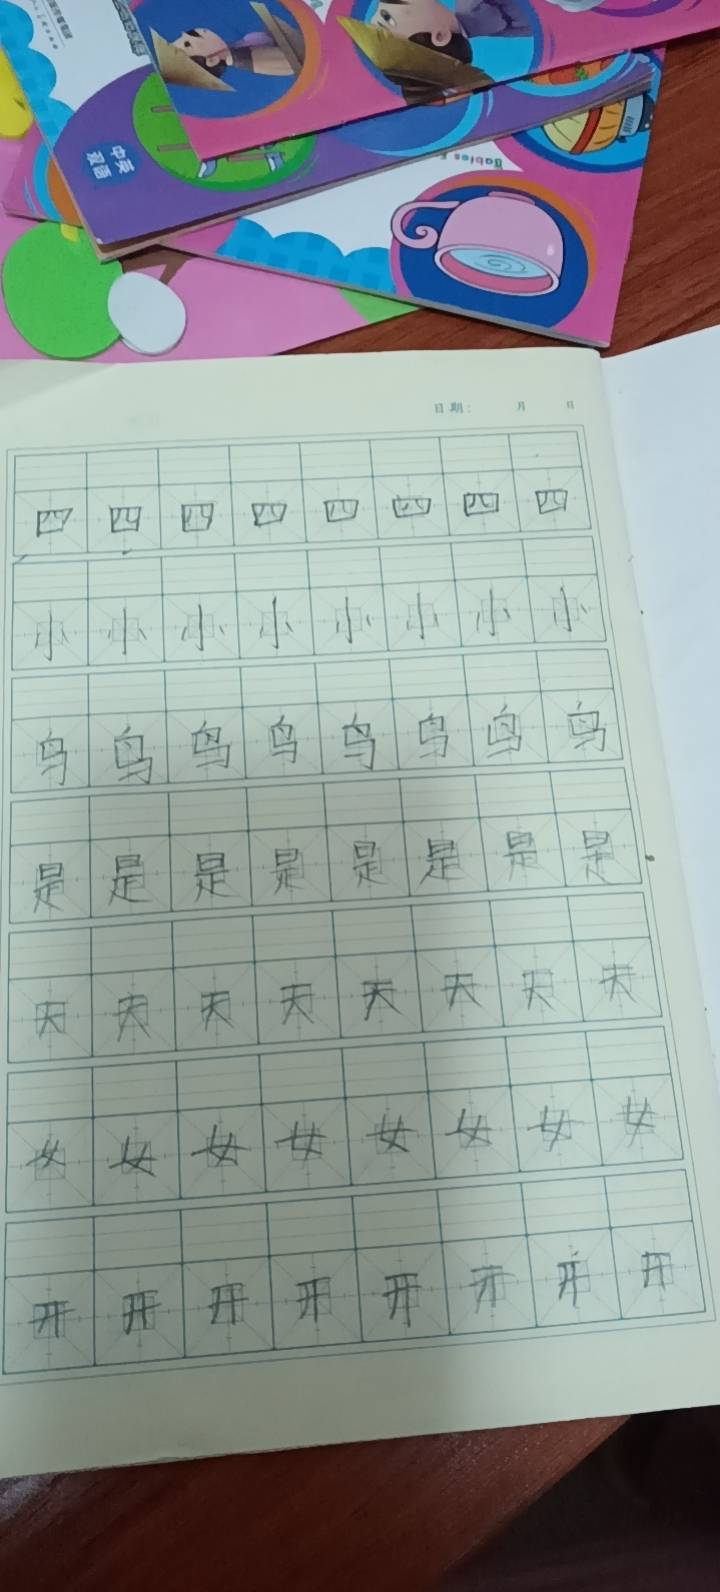 中英
双语
Babies
日期： 月 日
四 四 四 四 四 四 四 四
小 小 小 小 小 小 小 小
鸟 鸟 鸟 鸟 鸟 鸟 鸟 鸟
是 是 是 是 是 是 是 是
天 天 天 天 天 天 天 天
女 女 女 女 女 女 女 女
开 开 开 开 开 开 开 开